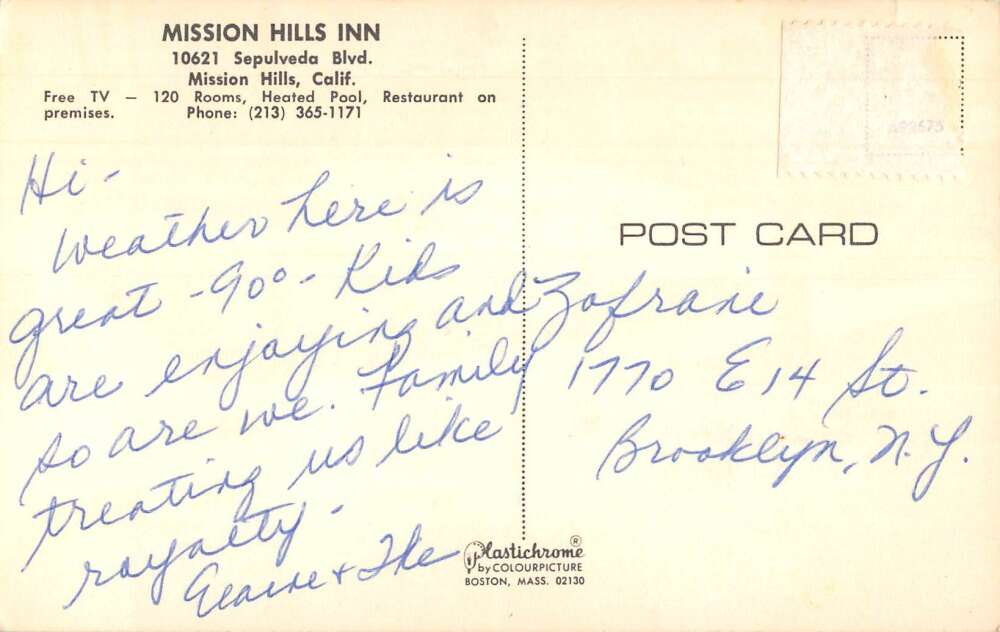 MISSION HILLS INN
10621 Sepulveda Blvd.
Mission Hills, Calif.
Free TV — 120 Rooms, Heated Pool, Restaurant on
premises. Phone: (213) 365-1171
Hi-
Weather here is
great - 90° - Kids
are enjoying and
so are we. Family
treating us like
royalty -
Elaine + Ike
POST CARD
Zafranie
1770 E 14 St.
Brooklyn, N.Y.
Plastichrome ®
by COLOURPICTURE
BOSTON, MASS. 02130